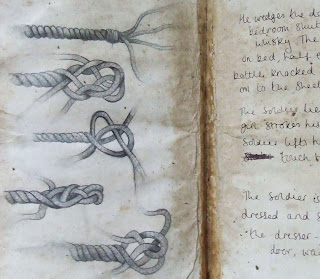 He wedges the do
bedroom shut
whisky. The
on bed, half
bottle, knocked
on to the sheet
The soldier lie
girl strokes his
Soldier lifts h
touch
The soldier is
dressed and s
the dresser -
door, wai